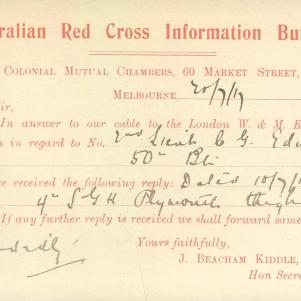 ralian Red Cross Information Bu
Colonial Mutual Chambers, 60 Market Street,
Melbourne, 20/7/17
ir,
In answer to our cable to the London W. & M. E
in regard to No. 2nd Lieut C G. Edw
50th Bn
e received the following reply: Dated 10/7/1
4th S G H Plymouth thigh
If any further reply is received we shall forward same
Yours faithfully,
J. Beacham Kiddle,
Hon Secre